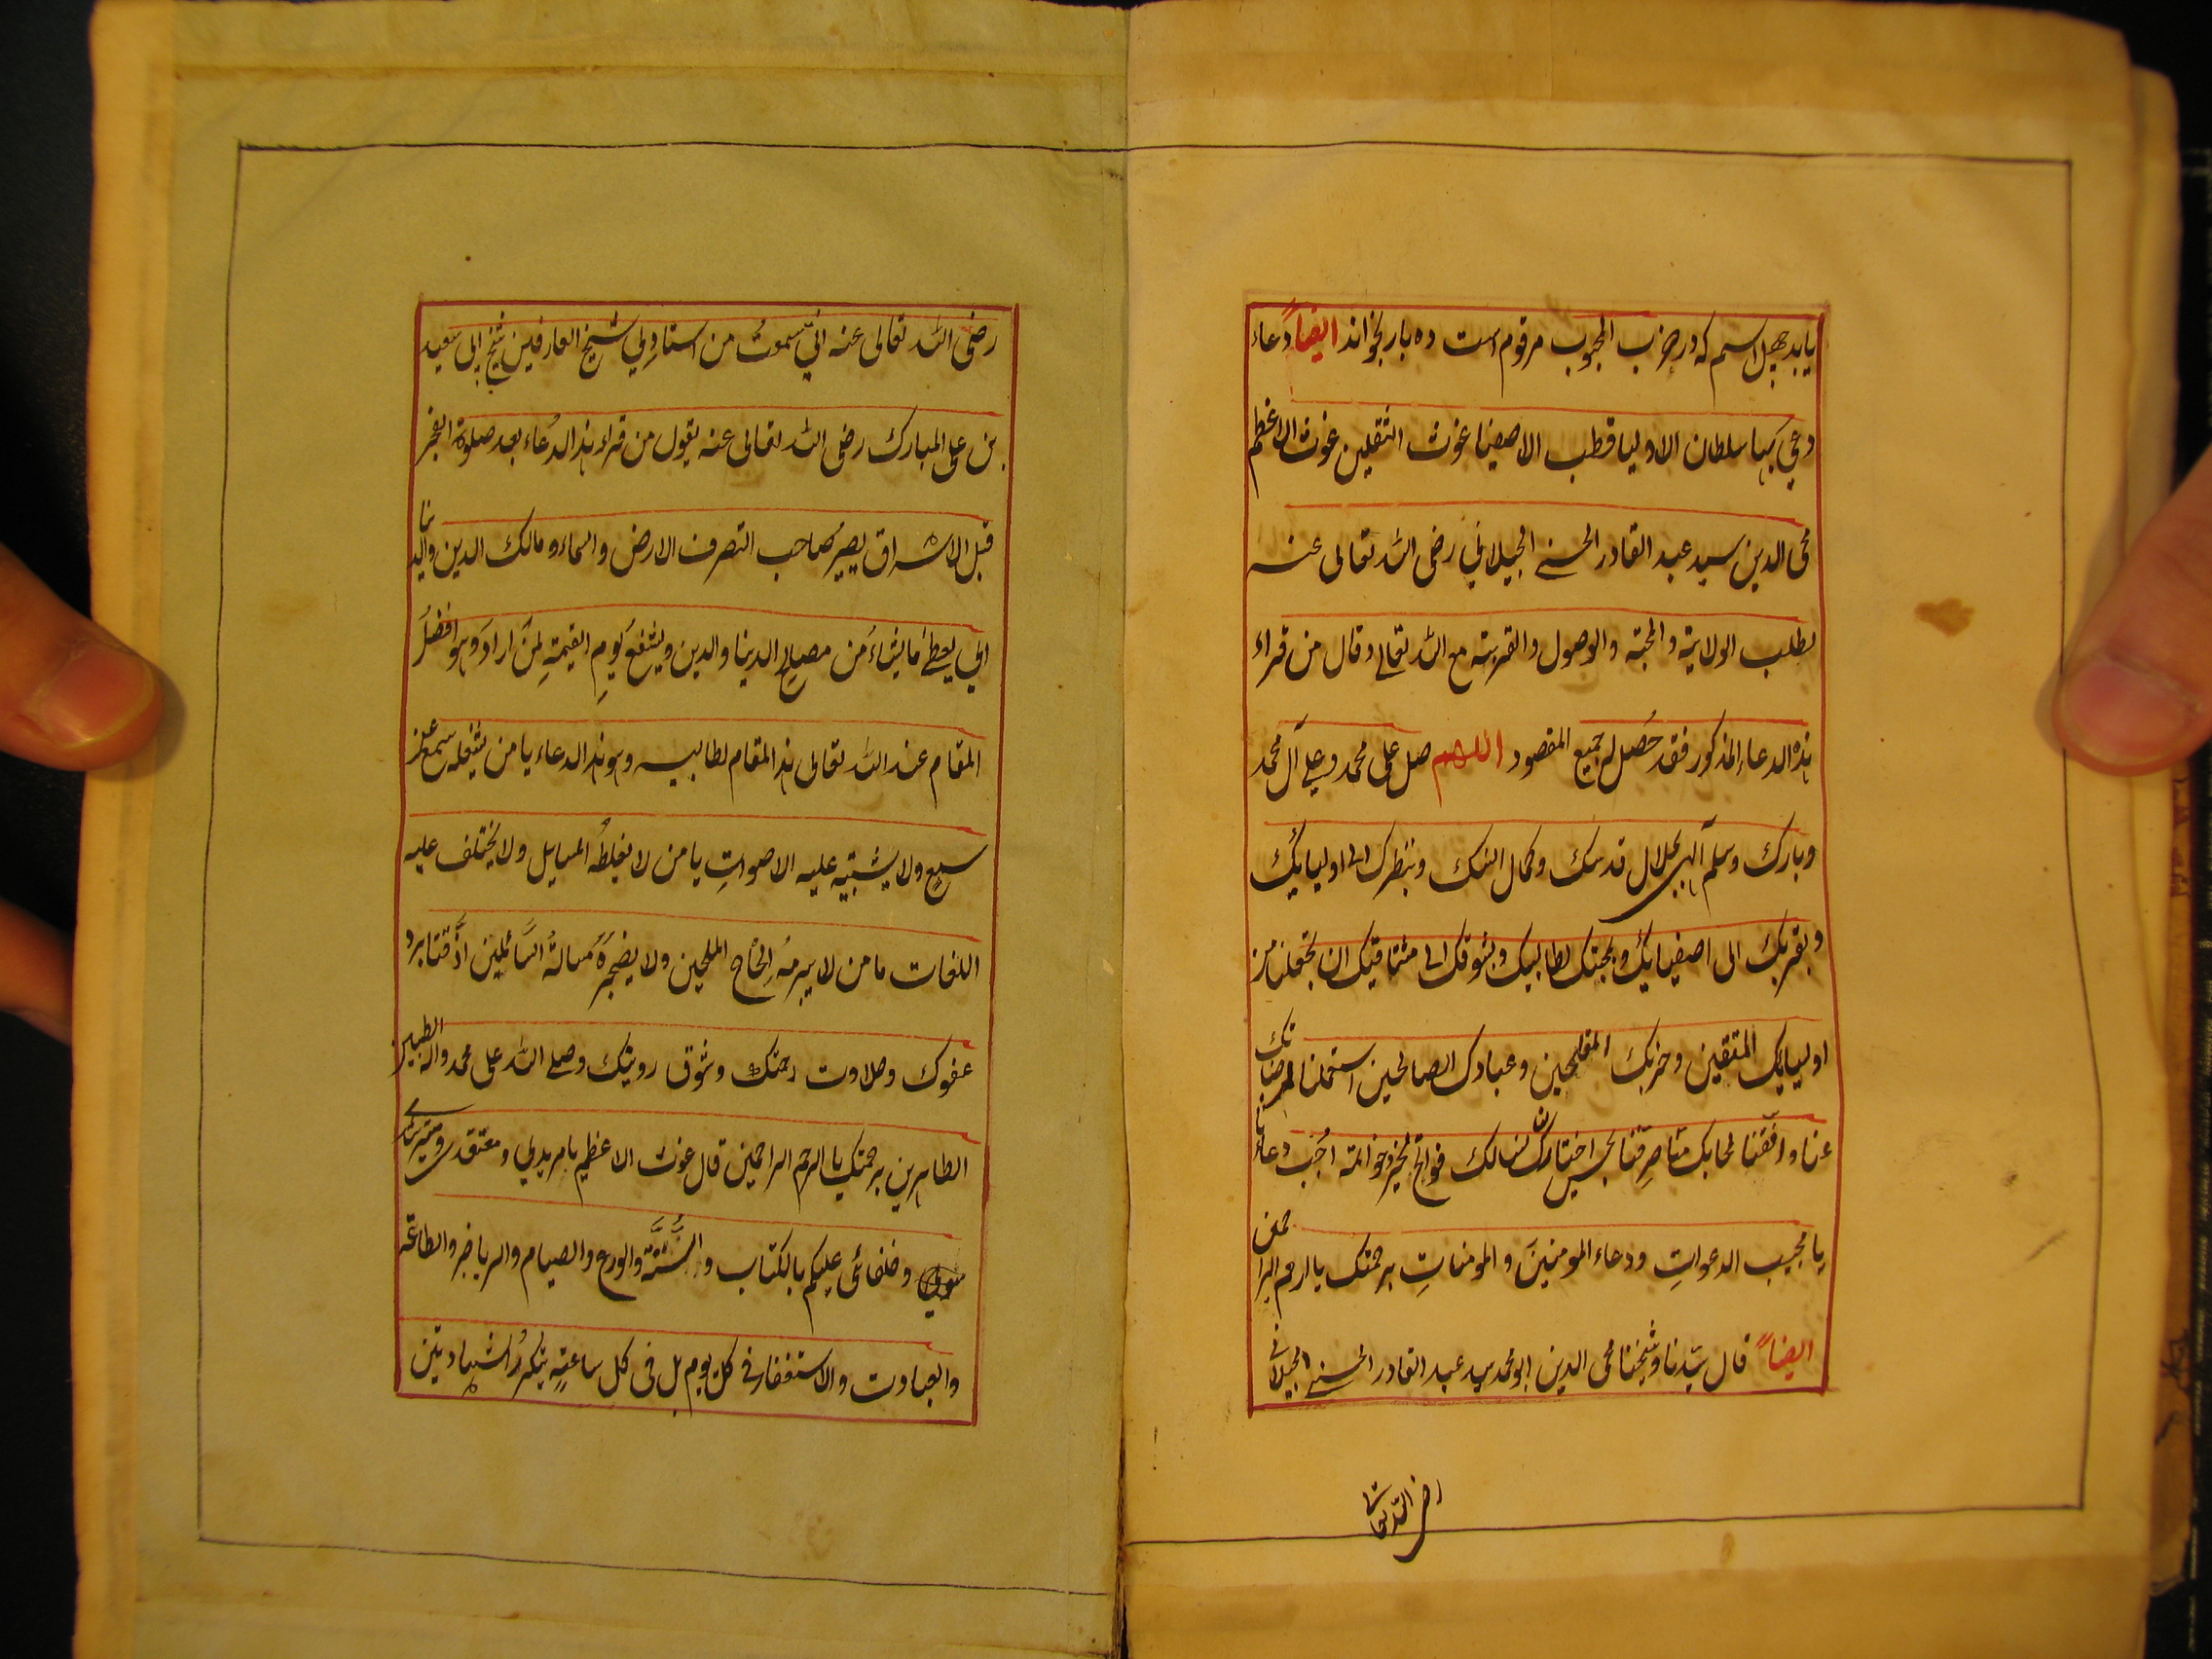 یابد چهل اسم که در حزب المحبوب مرقوم است ده بار بخواند ایضاً دعاء
دعی بها سلطان الاولیا قطب الاصفیا غوث الثقلین غوث الاعظم
محی الدین سید عبد القادر الحسنے الجیلانی رضی اللّه تعالی عنه
لطلب الولایة والمحبة والوصول والقربة مع اللّه تعالے وقال من قراء
هذه الدعاء المذکور فقد حُصل له جمیع المقصود اللهم صل علی محمد وعلے آل محمد
وبارک وسلم الٓهی بجلال قدسک وکمال انسک وبنظرک الی اولیایک
وبقربک الی اصفیایک وبمحبتک لطالبیک وبشوقک الی مشتاقیک ان تجعلنا من
اولیایک المتقین وحزبک المفلحین وعبادک الصالحین استعملنا لمرضاتک
عنا وافقنا لمحابک صرفنا بحسن اختیارک نسالک فواتح الخیر وخواتمه اجب دعاءنا
یا مجیب الدعواتِ ودعاء المومنینَ والمومناتِ برحمتک یا ارحم الراحمین
ایضاً قال سیّدنا وشیخنا محی الدین ابو محمد سید عبد القادر الحسنے الجیلانی
رضی اللّه تعالی
رضی اللّه تعالی عنه انی سمعتُ من استادی شیخ العارفین شیخ ابی سعید
بن علی المبارک رضی اللّه تعالی عنه یقول من قراء هذا الدعاء بعد صلوة الفجر
قبل الاشراق یصیر صاحب التصرف الارض والسماء ومالک الدین والدنیا
الی یعطےٰ مایشاءُ من مصالح الدنیا والدین ویشفع یومِ القیمةِ لمن اراد وهو افضل
المقام عند اللّه تعالی هذا المقام لطالبیه وهو هذا الدعاء یا من لا یشغله سمع عن
سمع ولا یشتبه علیه الاصواتِ یا من لا یغلطهُ المسایل ولا یختلف علیه
اللغات یا من لا یبرمهُ الحاح الملحین ولا یضجرهُ مسالةُ السّائلین اذقنا برد
عفوک وحلاوت رحمتک وشوق رویتک وصلے اللّه علی محمد واله الطیبین
الطاهرین برحمتک یا ارحم الراحمین قال غوث الاعظم یا مریدی ومعتقدی
وخلفائی علیکم بالکتاب والسُّنَّة والورع والصیام والریاضة والطاعة
والعبادت والاستغفار فی کل یوم بل فی کل ساعةٍ بتکرارُ الشهادتین